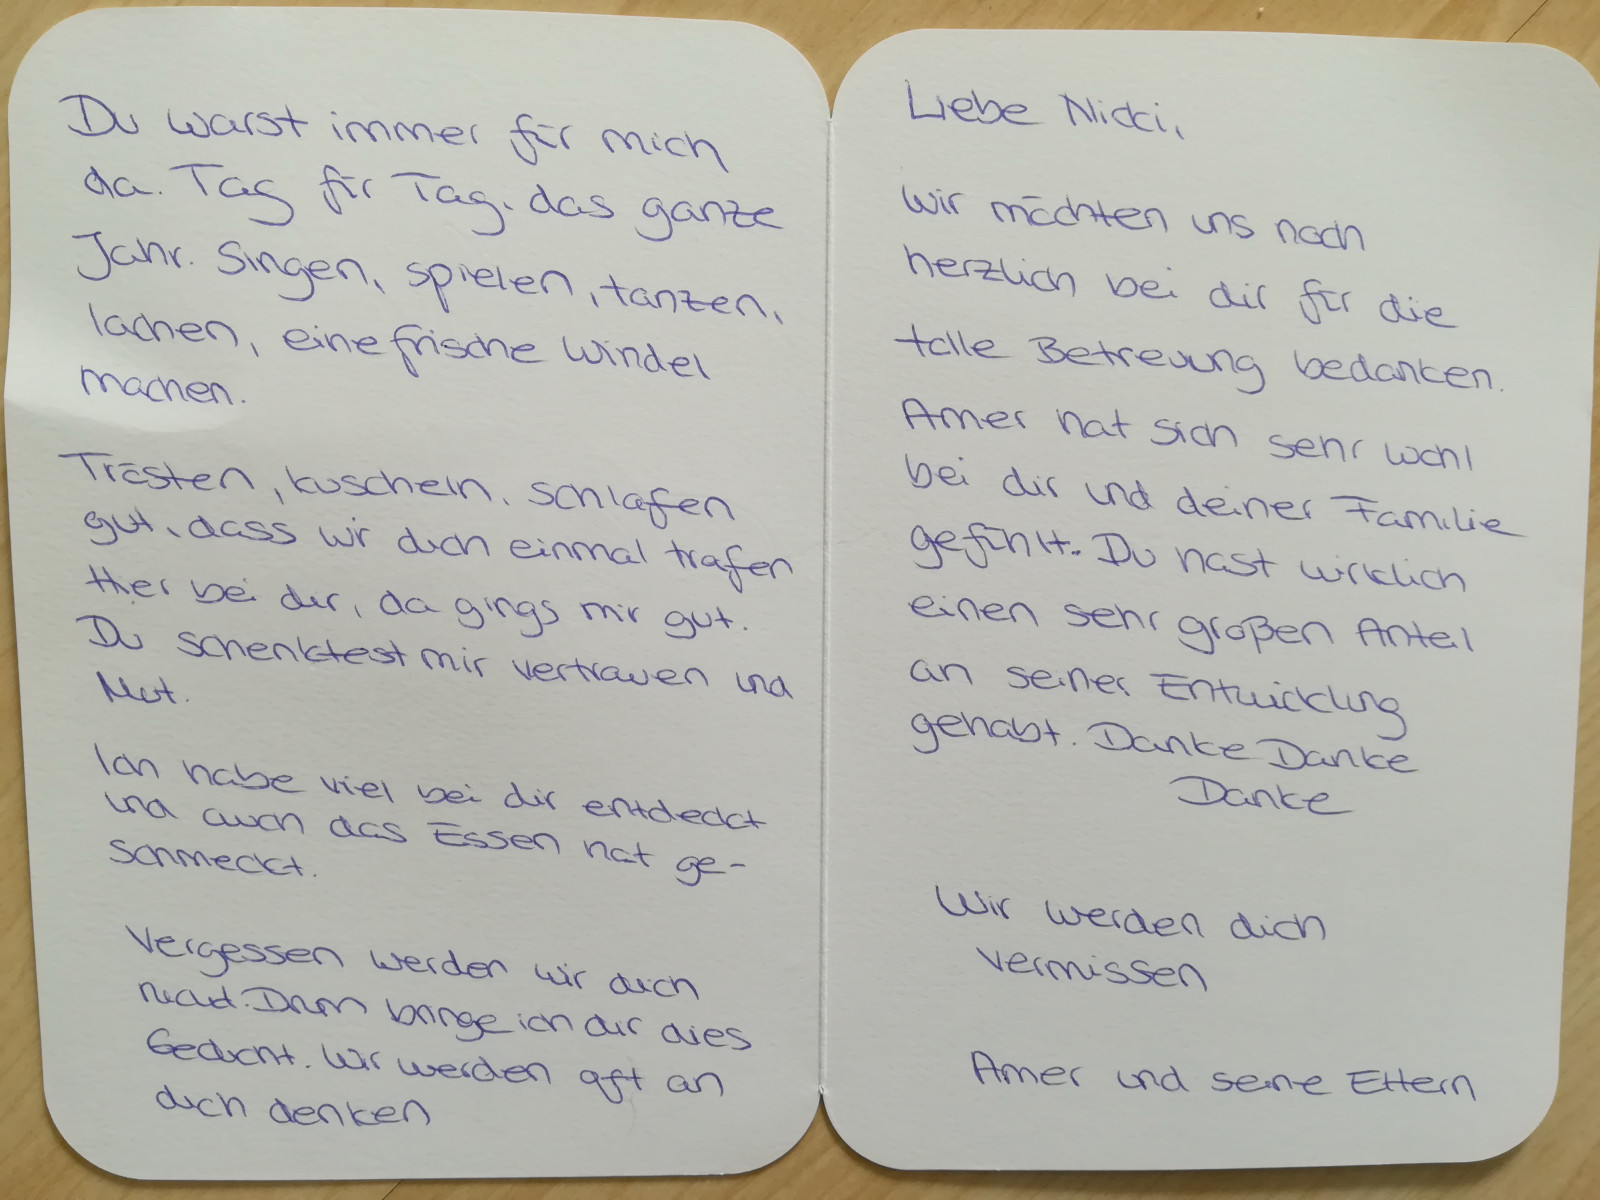 Du warst immer für mich
da. Tag für Tag, das ganze
Jahr. Singen, spielen, tanzen,
lachen, eine frische Windel
machen.
Trösten, kuscheln, schlafen
gut, dass wir dich einmal trafen
Hier bei dir, da gings mir gut.
Du schenktest mir vertrauen und
Mut.
Ich habe viel bei dir entdeckt
und auch das Essen hat ge-
schmeckt.
Vergessen werden wir dich
nicht. Drum bringe ich dir dies
Gedicht. Wir werden oft an
dich denken
Liebe Nicki,
wir möchten uns noch
herzlich bei dir für die
tolle Betreuung bedanken.
Amer hat sich sehr wohl
bei dir und deiner Familie
gefühlt. Du hast wirklich
einen sehr großen Anteil
an seiner Entwicklung
gehabt. Danke Danke
Danke
Wir werden dich
vermissen
Amer und seine Eltern